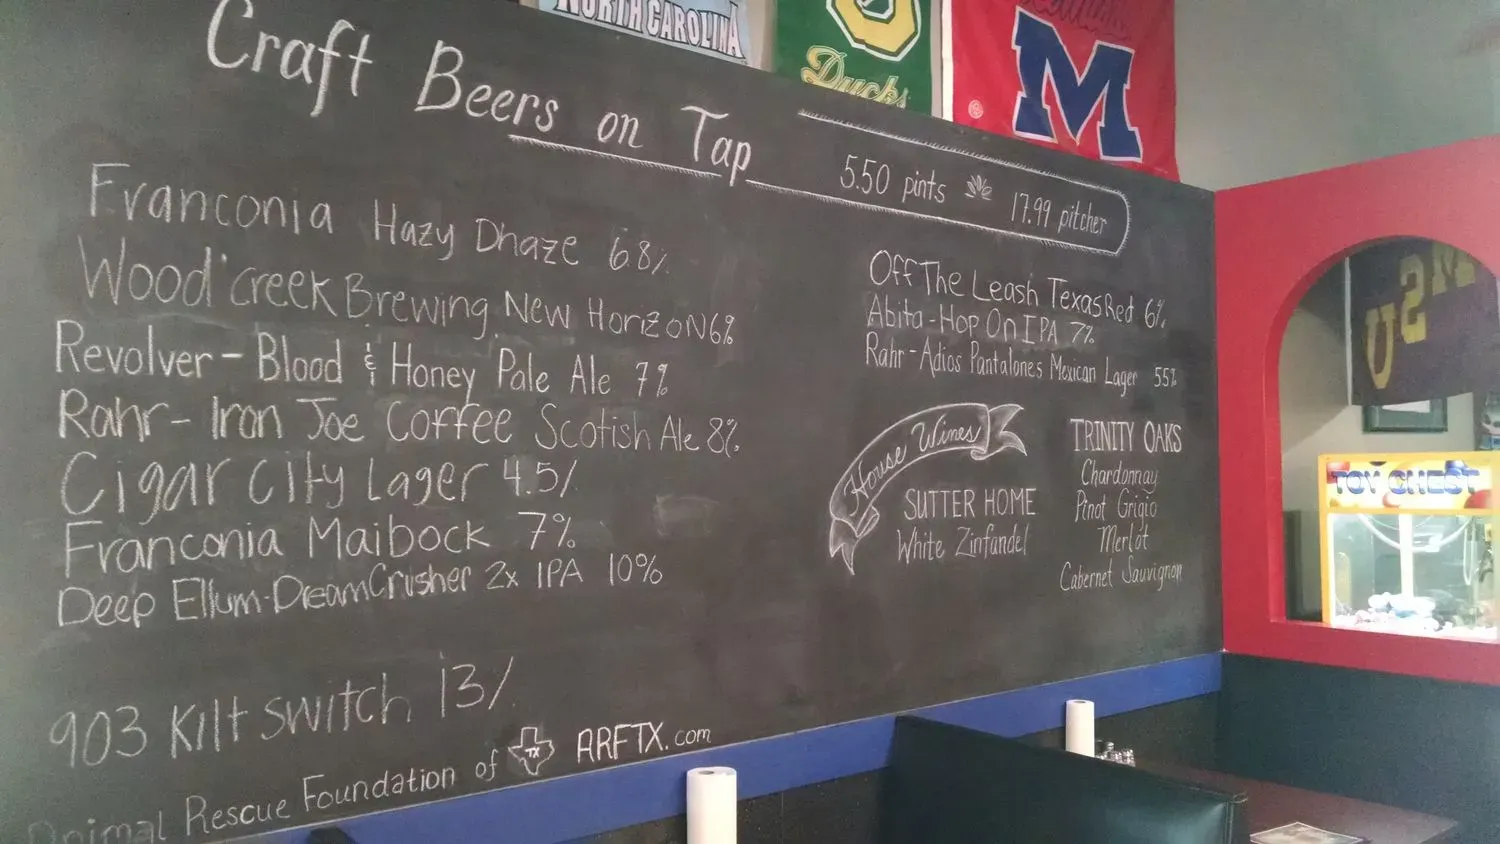 NORTH CAROLINA
O
Ducks
M
Craft Beers on Tap
5.50 pints 17.99 pitcher
Franconia Hazy Dhaze 6.8%
Wood creek Brewing New Horizon 6%
Revolver - Blood & Honey Pale Ale 7%
Rahr - Iron Joe Coffee Scotish Ale 8%
Cigar City Lager 4.5%
Franconia Maibock 7%
Deep Ellum - DreamCrusher 2x IPA 10%
903 Kilt switch 13%
Animal Rescue Foundation of TX ARFTX.com
Off The Leash Texas Red 6%
Abita - Hop On IPA 7%
Rahr - Adios Pantalones Mexican Lager 55%
House Wines
SUTTER HOME
White Zinfandel
TRINITY OAKS
Chardonnay
Pinot Grigio
Merlot
Cabernet Sauvignon
TOY CHEST